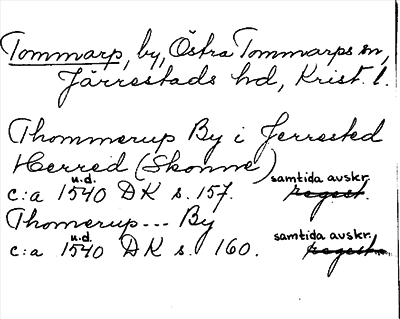 Tommarp, by, Östra Tommarps sn,
Järrestads hd, Krist. l.
Thommerup By i Jerrested
Herred (Skonne)
u.d. samtida avskr.
c:a 1540 DK s. 157. regest.
Thomerup--- By
u.d. samtida avskr.
c:a 1540 DK s. 160.